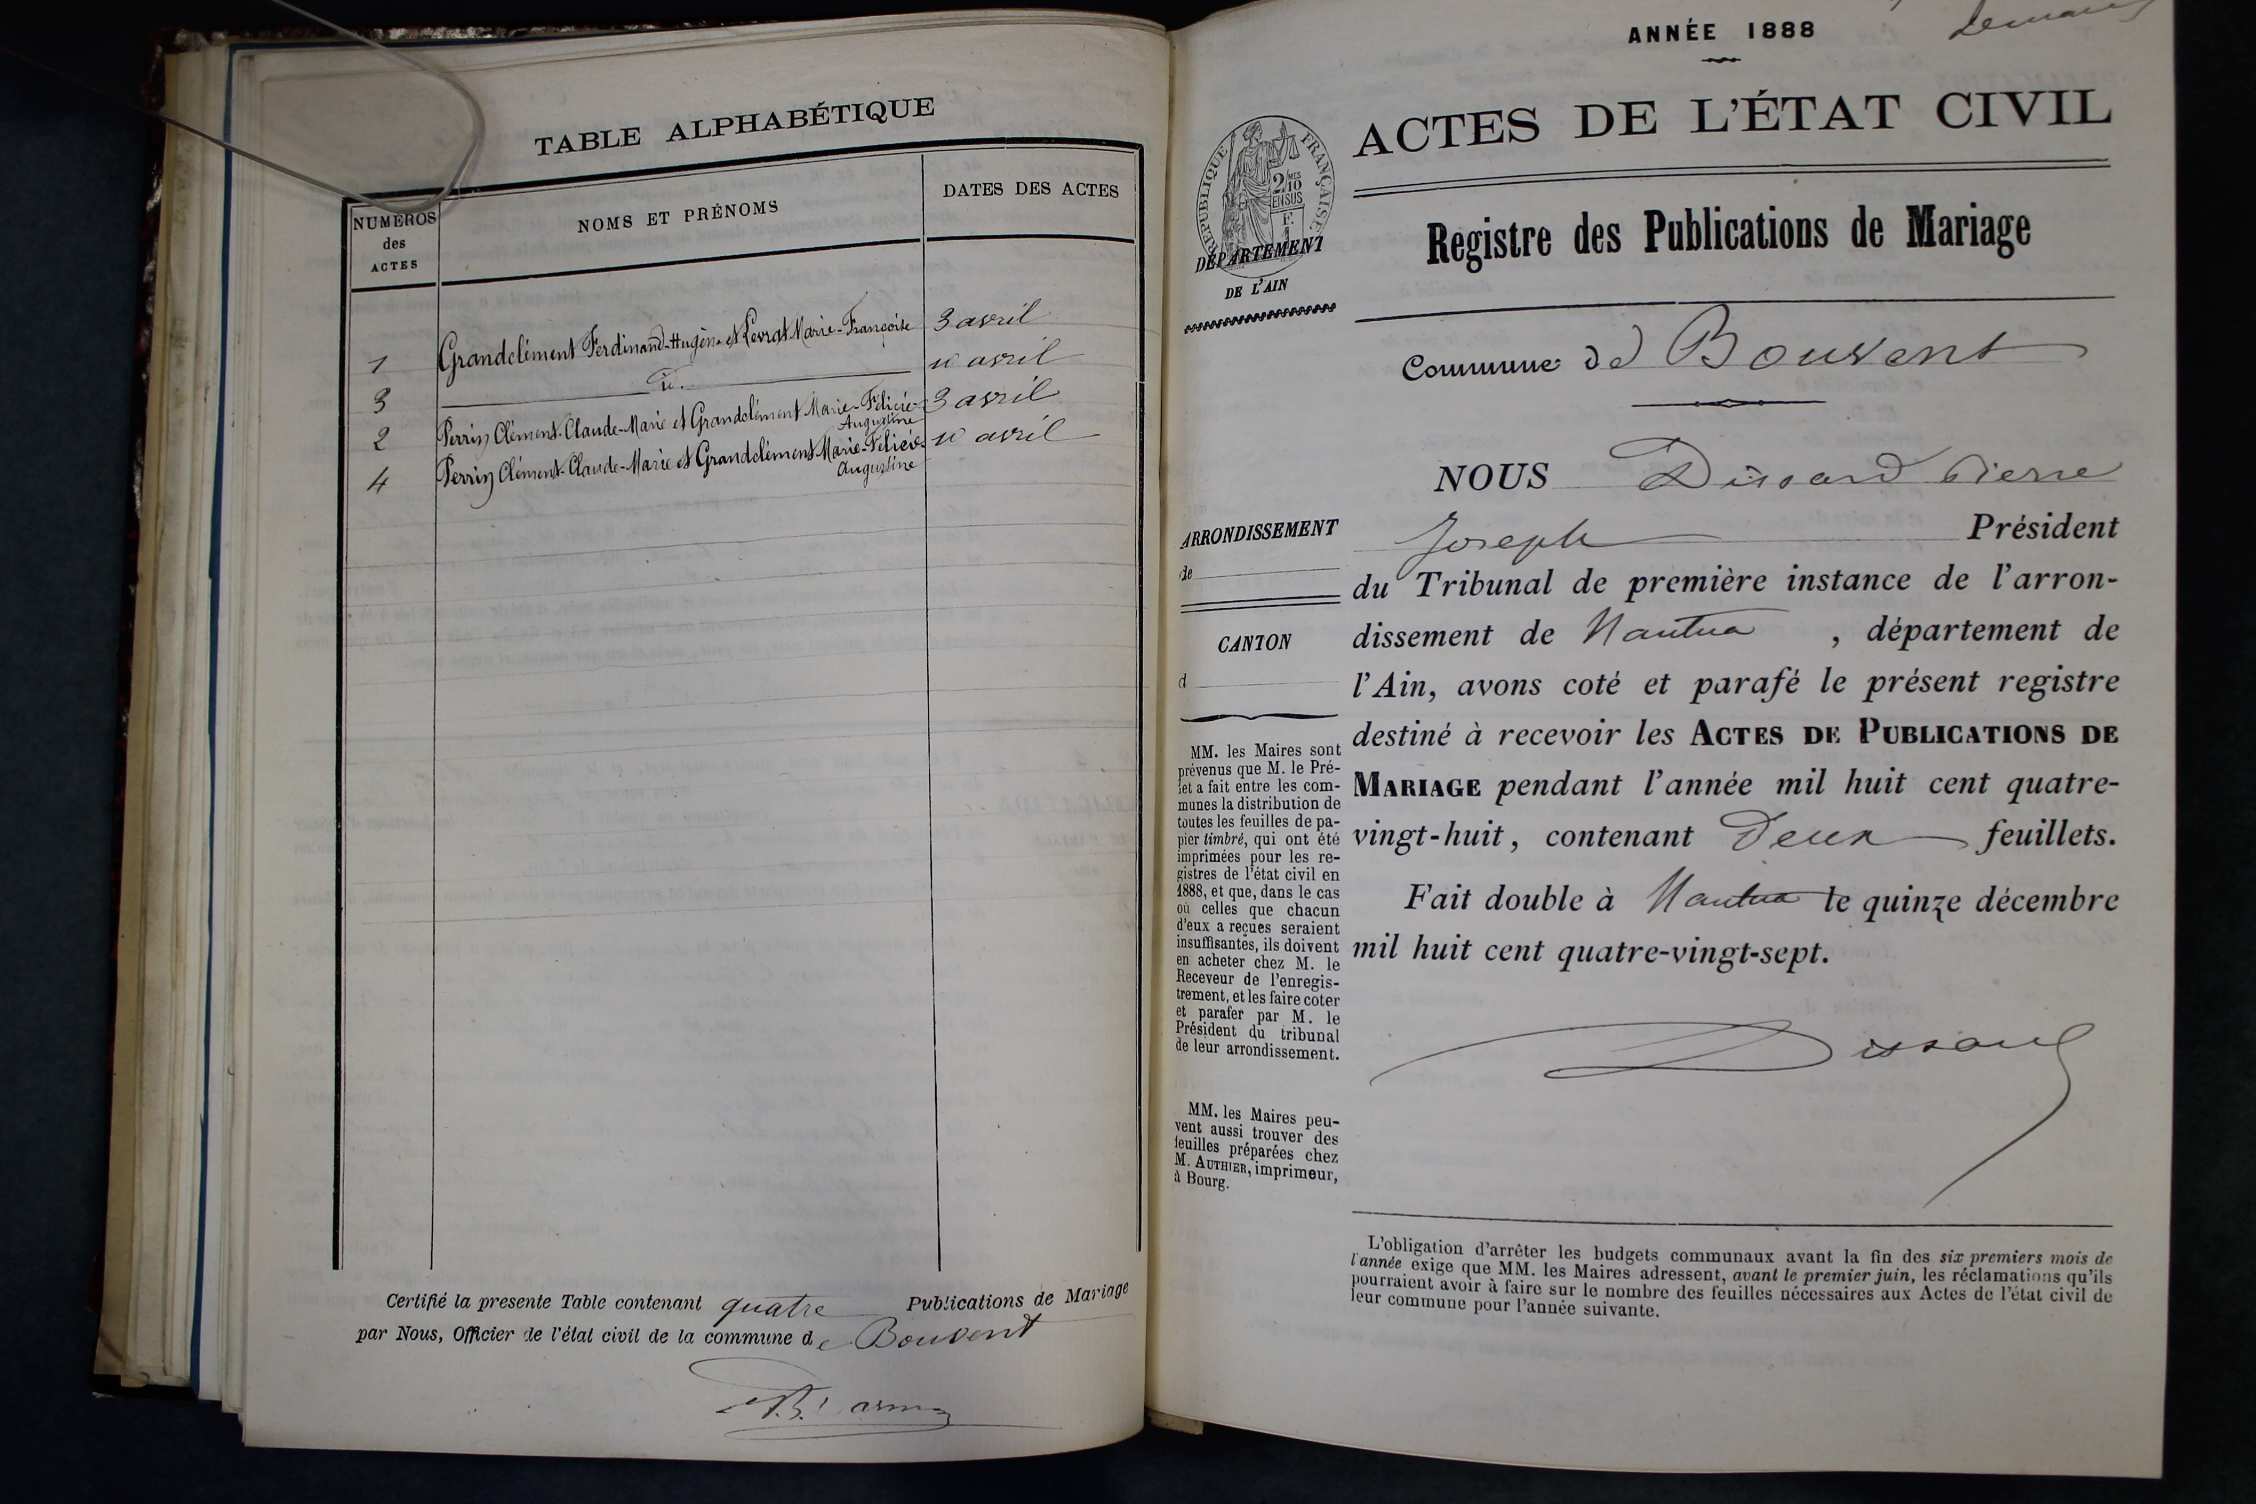 TABLE ALPHABÉTIQUE
NUMÉROS
des
ACTES
NOMS ET PRÉNOMS
DATES DES ACTES
1 Grandclément Ferdinand-Hugène et Levrat Marie-Françoise 3 avril
3 id. 10 avril
2 Perrin Clément-Claude-Marie et Grandclément Marie-Félicie- 3 avril
Augustine
4 Perrin Clément-Claude-Marie et Grandclément Marie-Félicie 10 avril
Augustine
Certifié la presente Table contenant quatre Publications de Mariage
par Nous, Officier de l'état civil de la commune de Bouvent
ANNÉE 1888
ACTES DE L'ÉTAT CIVIL
RÉPUBLIQUE FRANÇAISE
2/10 MES
EN SUS
DÉPARTEMENT
DE L'AIN
Registre des Publications de Mariage
Commune de Bouvent
NOUS Dissard Pierre
Joseph Président
du Tribunal de première instance de l'arron-
dissement de Nantua, département de
l'Ain, avons coté et parafé le présent registre
destiné à recevoir les ACTES DE PUBLICATIONS DE
MARIAGE pendant l'année mil huit cent quatre-
vingt-huit, contenant Deux feuillets.
Fait double à Nantua le quinze décembre
mil huit cent quatre-vingt-sept.
Dissard
ARRONDISSEMENT
de
CANTON
d
MM. les Maires sont
prévenus que M. le Pré-
fet a fait entre les com-
munes la distribution de
toutes les feuilles de pa-
pier timbré, qui ont été
imprimées pour les re-
gistres de l'état civil en
1888, et que, dans le cas
où celles que chacun
d'eux a reçues seraient
insuffisantes, ils doivent
en acheter chez M. le
Receveur de l'enregis-
trement, et les faire coter
et parafer par M. le
Président du tribunal
de leur arrondissement.
MM. les Maires peu-
vent aussi trouver des
feuilles préparées chez
M. AUTHIER, imprimeur,
à Bourg.
L'obligation d'arrêter les budgets communaux avant la fin des six premiers mois de
l'année exige que MM. les Maires adressent, avant le premier juin, les réclamations qu'ils
pourraient avoir à faire sur le nombre des feuilles nécessaires aux Actes de l'état civil de
leur commune pour l'année suivante.